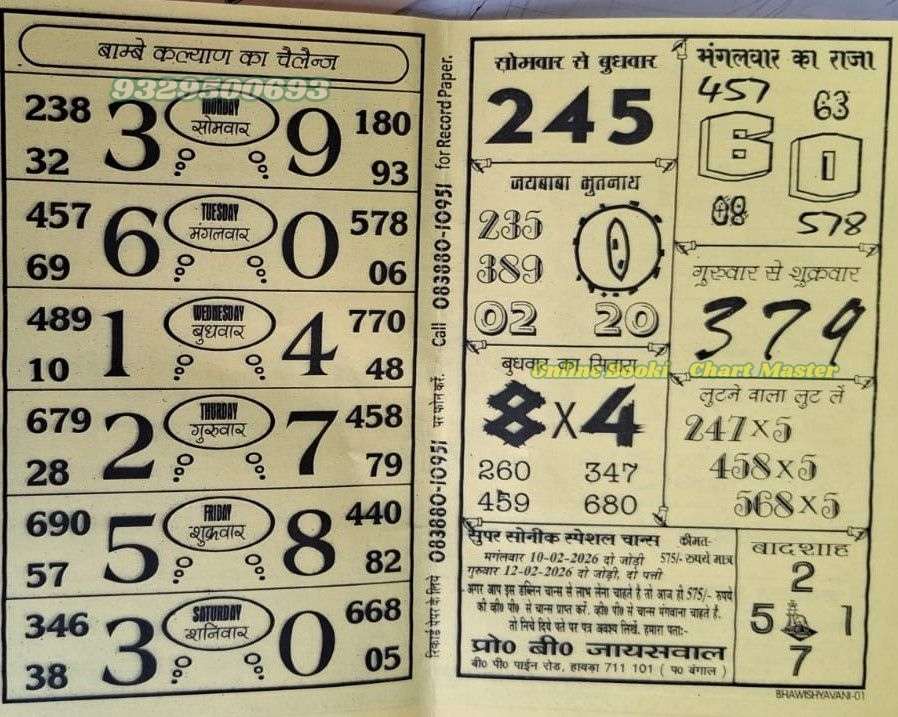 बाम्बे कल्याण का चैलेन्ज
9329500693
238 3 MONDAY 9 180
32 सोमवार 93
457 6 TUESDAY 0 578
69 मंगलवार 06
489 1 WEDNESDAY 4 770
10 बुधवार 48
679 2 THURDAY 7 458
28 गुरुवार 79
690 5 FRIDAY 8 440
57 शुक्रवार 82
346 3 SATURDAY 0 668
38 शनिवार 05
रिकार्ड पेपर के लिये 083880-10951 पर फोन करें. Call 083880-10951 for Record Paper.
सोमवार से बुधवार
245
जयबाबा भुतनाथ
235
389
0
02 20
बुधवार का सितारा
Online Booki Chart Master
8x4
260 347
459 680
मंगलवार का राजा
457 63
6 0
08 578
गुरुवार से शुक्रवार
379
लुटने वाला लुट लें
247x5
458x5
568x5
सुपर सोनीक स्पेशल चान्स कीमत-
मंगलवार 10-02-2026 दो जोड़ी 575/- रुपये मात्र
गुरुवार 12-02-2026 दो जोड़ी, दो पत्ती
अगर आप इस डब्लिन चान्स से लाभ लेना चाहते है तो आज ही 575/- रुपये
की व्ही० पी० से चान्स प्राप्त करें. व्ही० पी० से चान्स मंगवाना चाहते है.
तो निचे दिये पते पर पत्र अवश्य लिखें. हमारा पता:-
प्रो० बी० जायसवाल
बी० पी० पाईन रोड, हावड़ा 711 101 ( प० बंगाल )
बादशाह
2
5 1
7
BHAWISHYAVANI-01